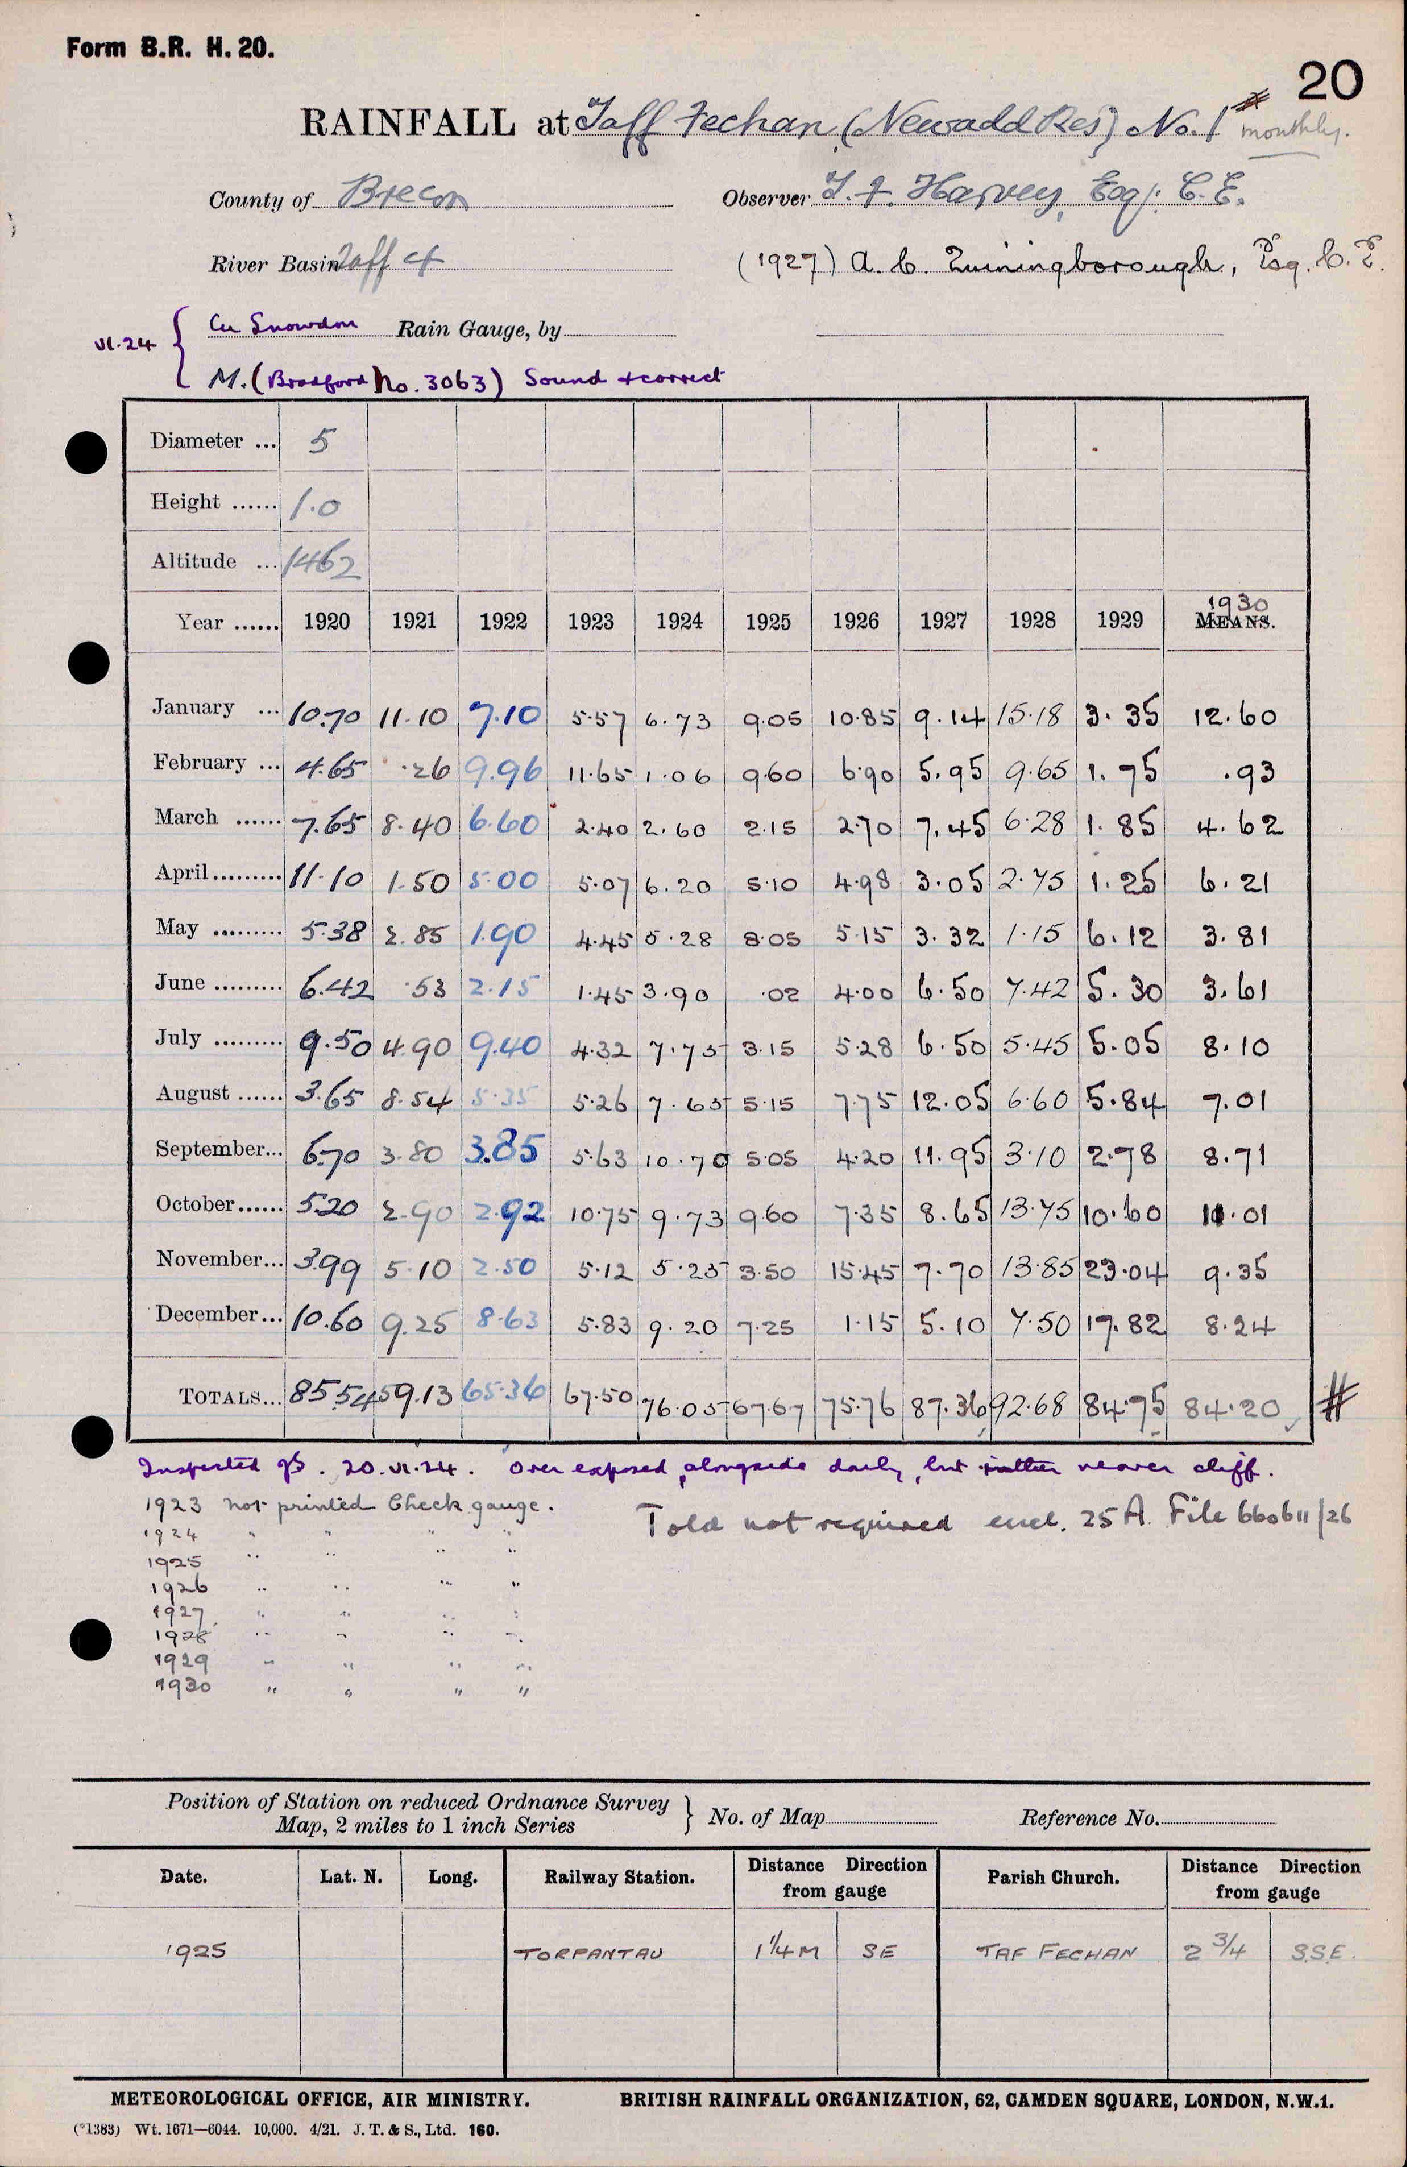 Form B.R. H. 20.
20
RAINFALL at Taff Fechan (Neuadd Res) No. 1 #
monthly.
County of Brecon Observer T. F. Harvey, Esq. C.E.
River Basin Taff 4 (1927) A. C. Esq. C.E.
VI.24 { Cu Snowdon Rain Gauge, by
M. (Bradford No. 3063) Sound & correct
Diameter ... 5
Height ...... 1.0
Altitude ... 1462
Year ...... 1920 1921 1922 1923 1924 1925 1926 1927 1928 1929 1930 MEANS.
January ... 10.70 11.10 7.10 5.57 6.73 9.05 10.85 9.14 15.18 3.35 12.60
February ... 4.65 .26 9.96 11.65 1.06 9.60 6.90 5.95 9.65 1.75 .93
March ...... 7.65 8.40 6.60 2.40 2.60 2.15 2.70 7.45 6.28 1.85 4.62
April ......... 11.10 1.50 5.00 5.07 6.20 5.10 4.98 3.05 2.75 1.25 6.21
May ......... 5.38 2.85 1.90 4.45 5.28 8.05 5.15 3.32 1.15 6.12 3.81
June ......... 6.42 .53 2.15 1.45 3.90 .02 4.00 6.50 7.42 5.30 3.61
July ......... 9.50 4.90 9.40 4.32 7.75 3.15 5.28 6.50 5.45 5.05 8.10
August ...... 3.65 8.54 5.35 5.26 7.65 5.15 7.75 12.05 6.60 5.84 7.01
September... 6.70 3.80 3.85 5.63 10.70 5.05 4.20 11.95 3.10 2.78 8.71
October...... 5.20 2.90 2.92 10.75 9.73 9.60 7.35 8.65 13.75 10.60 11.01
November... 3.99 5.10 2.50 5.12 5.25 3.50 15.45 7.70 13.85 23.04 9.35
December... 10.60 9.25 8.63 5.83 9.20 7.25 1.15 5.10 7.50 17.82 8.24
TOTALS... 85.54 59.13 65.36 67.50 76.05 67.67 75.76 87.36 92.68 84.75 84.20 #
Inspected 20.VI.24. Over exposed, alongside daily, but rather nearer cliff.
1923 not printed Check gauge.
Told not required encl. 25A. File 660611/26
1924 " " " "
1925 " " " "
1926 " " " "
1927 " " " "
1928 " " " "
1929 " " " "
1930 " " " "
Position of Station on reduced Ordnance Survey Map, 2 miles to 1 inch Series } No. of Map Reference No.
Date. Lat. N. Long. Railway Station. Distance Direction from gauge Parish Church. Distance Direction from gauge
1925 TORPANTAU 1 1/4 M SE TAF FECHAN 2 3/4 S.S.E.
METEOROLOGICAL OFFICE, AIR MINISTRY. BRITISH RAINFALL ORGANIZATION, 62, CAMDEN SQUARE, LONDON, N.W.1.
(*1383) Wt. 1671—6044. 10,000. 4/21. J. T. & S., Ltd. 160.